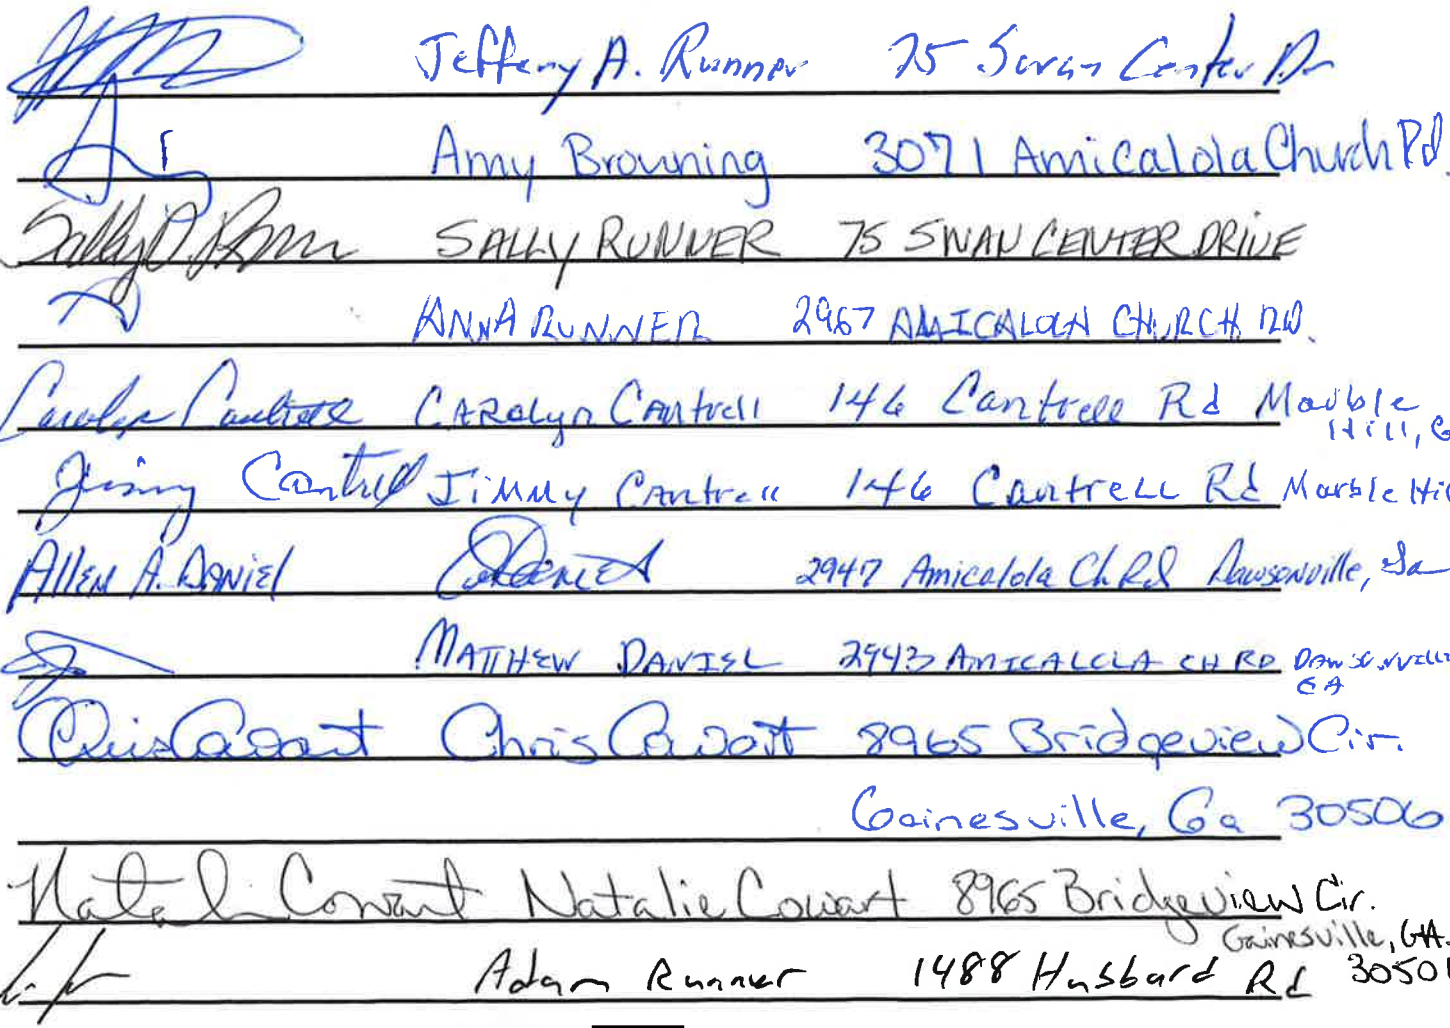 Jeffery A. Runner 75 Swan Center Dr
Amy Browning 3071 Amicalola Church Rd.
Sally D. Runner SALLY RUNNER 75 SWAN CENTER DRIVE
ANNA RUNNER 2967 AMICALOLA CHURCH RD.
Carolyn Cantrell CAROlyn CAntrell 146 Cantrell Rd Marble
Hill, G
Jimmy Cantrell JiMMy CAntrell 146 CantreLL Rd Marble Hil
Allen A. DANiEl 2947 Amicalola Ch Rd Dawsonville, Ga
MATTHEW DANIEL 2943 AMICALOLA CH RD DAWSONVILLE
GA
Chris Cowart Chris Cowart 8965 Bridgeview Cir.
Gainesville, Ga 30506
Natalie Cowart Natalie Cowart 8965 Bridgeview Cir.
Gainesville, GA.
Adam Runner 1488 Hubbard Rd 30501